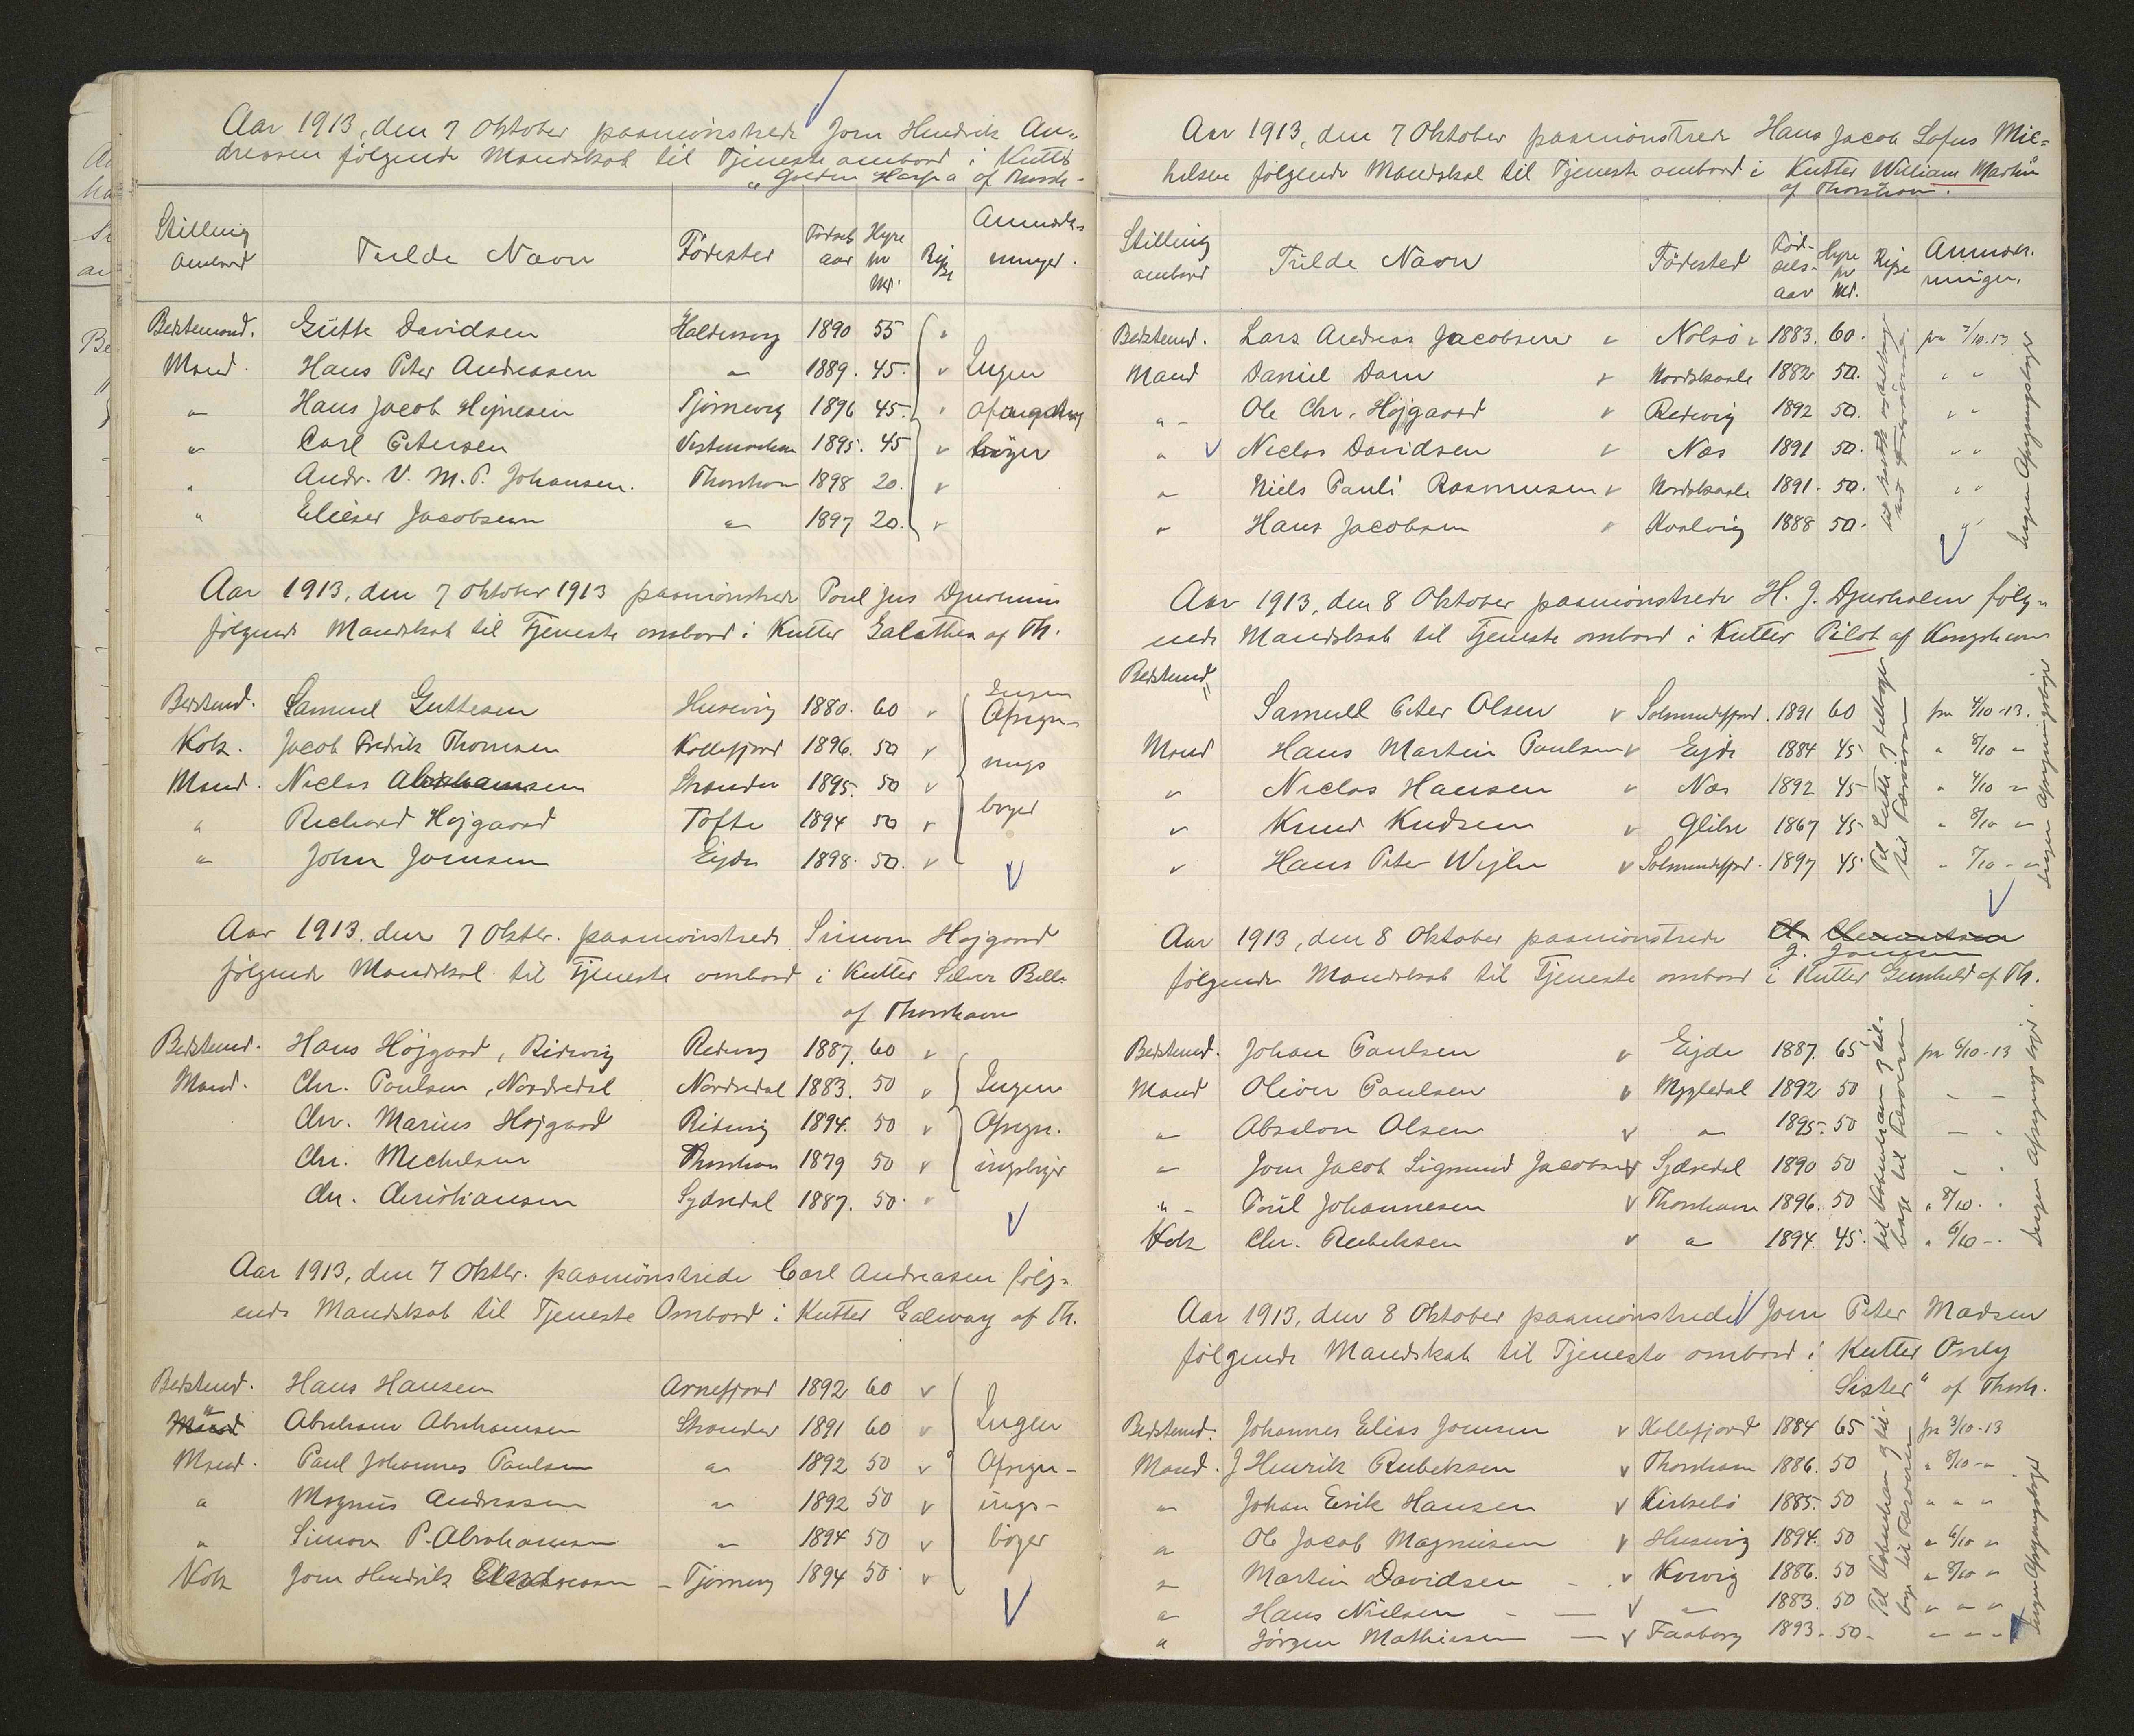 Aar 1913, den 7 Oktober paamönstrede Jom Hendrik An-
dreasen følgende Mandskab til Tjeneste ombord i Kutter
„Golden Harp a of Thorsh-
Stilling Ombord
Fulde Navn
Fødested
Fødsels aar
Hyre pr Md.
Rejse
Anmærk- ninger.
Bedstemand. Gutte Davidsen Haldersvig 1890 55 "
Mand. Hans Peter Andreasen " 1889. 45. v Ingen
" Hans Jacob Hejnesen Tjörnevig 1896 45. " Afregnings
" Carl Petersen Vestmanhavn 1895. 45 v böger
" Andr. V. M. P. Johansen. Thorshavn 1898 20. v
" Elieser Jacobsen " 1897 20. v
Aar 1913, den 7 Oktober 1913 paamönstrede Poul Jens
følgende Mandskab til Tjeneste ombord i Kutter Galathea af Th.
Bedstemd. Samuel Guttesen Husevig 1880. 60 v Ingen
Kok. Jacob Fredrik Thomsen Kollefjord 1896. 50 v Afregn-
Mand. Niclas Abrahamsen Strander 1895. 50 v ings
" Richard Højgaard Tofte 1894 50 v boger
" John Joensen Ejde 1898. 50. v
Aar 1913. den 7 Oktbr. paamönstrede Simon Højgaard
følgende Mandskab til Tjeneste ombord i Kutter Silver Bell
af Thorshavn
Bedstemd. Hans Höjgaard, Ridevig Redevig 1887. 60 v
Mand. Chr. Poulsen, Nordredal Nordredal 1883. 50 v Ingen
Chr. Marius Højgaard Ridevig 1894. 50 v Afregn.
Chr. Michelsen Thorshavn 1879 50 v ingsbøger
Chr. Christiansen Sydredal 1887. 50. "
Aar 1913, den 7 Oktbr. paamönstrede Carl Andreasen følg-
ende Mandskab til Tjeneste Ombord i Kutter Galway af Th.
Bedstemd. Hans Hansen Arnefjord 1892 60 v
Mand Abraham Abrahamsen Strander 1891 60 v Ingen
Mand. Paul Johannes Paulsen " 1892 50 v Afregn-
" Magnus Andreasen " 1892 50 v ings-
" Simon P. Abrahamsen " 1894 50 v böger
Kok Jom Hendrik Andreasen - Tjörnevig 1894 50 v
Aar 1913, den 7 Oktober paamönstrede Hans Jacob Lofus Mic-
helsen følgende Mandskab til Tjeneste ombord i Kutter William Martin
af Thorshavn.
Stilling ombord
Fulde Navn
Fødested
Fød- sels- aar
Hyre pr Md.
Rejse
Anmærk- ninger.
Bedstemd. Lars Andreas Jacobsen v Nolsö 1883. 60. fra 7/10.13
Mand Daniel Dam v Nordskaale 1882 50. " "
" Ole Chr. Højgaard v Redevig 1892 50. " "
" v Niclas Davidsen v Næs 1891 50. " "
" Niels Pauli Rasmussen v Nordskaale 1891. 50. " "
" Hans Jacobsen v Kvalvig 1888 50. "
Ingen Afregningsbøger
Aar 1913, den 8 Oktober paamönstrede H. J. Djurholm følg-
ende Mandskab til Tjeneste ombord i Kutter Pilot af Kongshavn
Bedstemd. Samuel Peter Olsen v Solmundefjord. 1891 60 fra 4/10-13.
Mand Hans Martin Paulsen v Ejde 1884 45 " 8/10 "
" Niclas Hansen v Næs 1892 45 " 4/10 "
" Knud Kudsen v Glibre 1867 45 " 8/10 "
" Hans Peter Wejhe v Solmundefjord. 1897 45 " 7/10 - "
Til Leith og tilbage til Færøerne
Ingen Afregningsbøger
Aar 1913, den 8 Oktober paamönstrede A. Clementsen
J. Joensen
følgende Mandskab til Tjeneste ombord i Kutter Gunhild af Th.
Bedstemd. Johan Paulsen v Ejde 1887. 65 fra 6/10-13
Mand Oliver Paulsen v Mygledal 1892 50 - -
" Absalon Olsen v " 1895. 50 - "
" Jom Jacob Sigmund Jacobsen v Sydredal 1890 50 - "
" - Poul Johannesen v Thorshavn 1896. 50 " 8/10. "
Kok Chr. Rubeksen v " 1894. 45. " 6/10 -.
til Kobenhavn og til- bage til Færöerne
Ingen Afregningsbøger
Aar 1913, den 8 Oktober paamönstrede Jom Peter Madsen
følgende Mandskab til Tjeneste ombord i Kutter Only
Sister" af Thorsh.
Bedstemd. Johannes Elias Joensen v Kollefjord 1884 65 fra 3/10-13
Mand. J Henrik Rubeksen v Thorshavn 1886. 50 " 8/10 - "
" Johan Eerik Hansen v Kirkebö 1885. 50 " " "
" Ole Jacob Magnusen v Husevig 1894. 50 " 6/10 "
" Martin Davidsen - v Kvivig 1886. 50 " 8/10 "
" Hans Nielsen - - v " 1883. 50 " " "
" Jörgen Mathiesen - v Faaborg 1893. 50. " " "
Til Kobenhavn og til- bage til Færöerne
Ingen Afregningsbøger